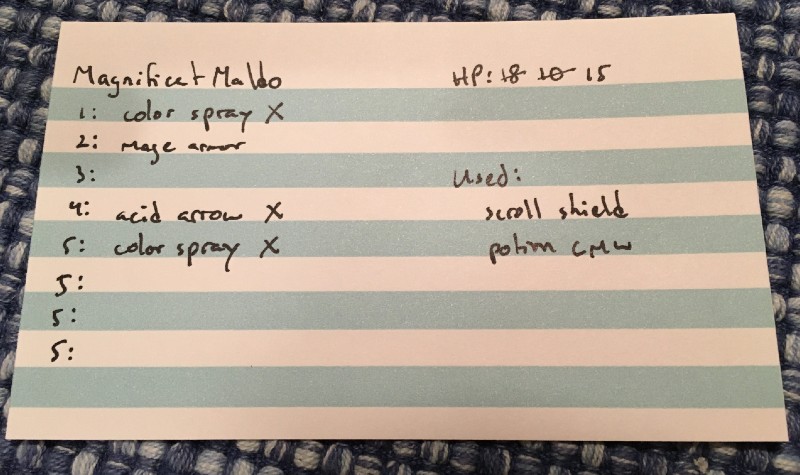 Magnificat Maldo
HP: 18 10 15
1: color spray X
2: mage armor
3:
Used:
4: acid arrow X
scroll shield
5: color spray X
potion CMW
5:
5:
5: